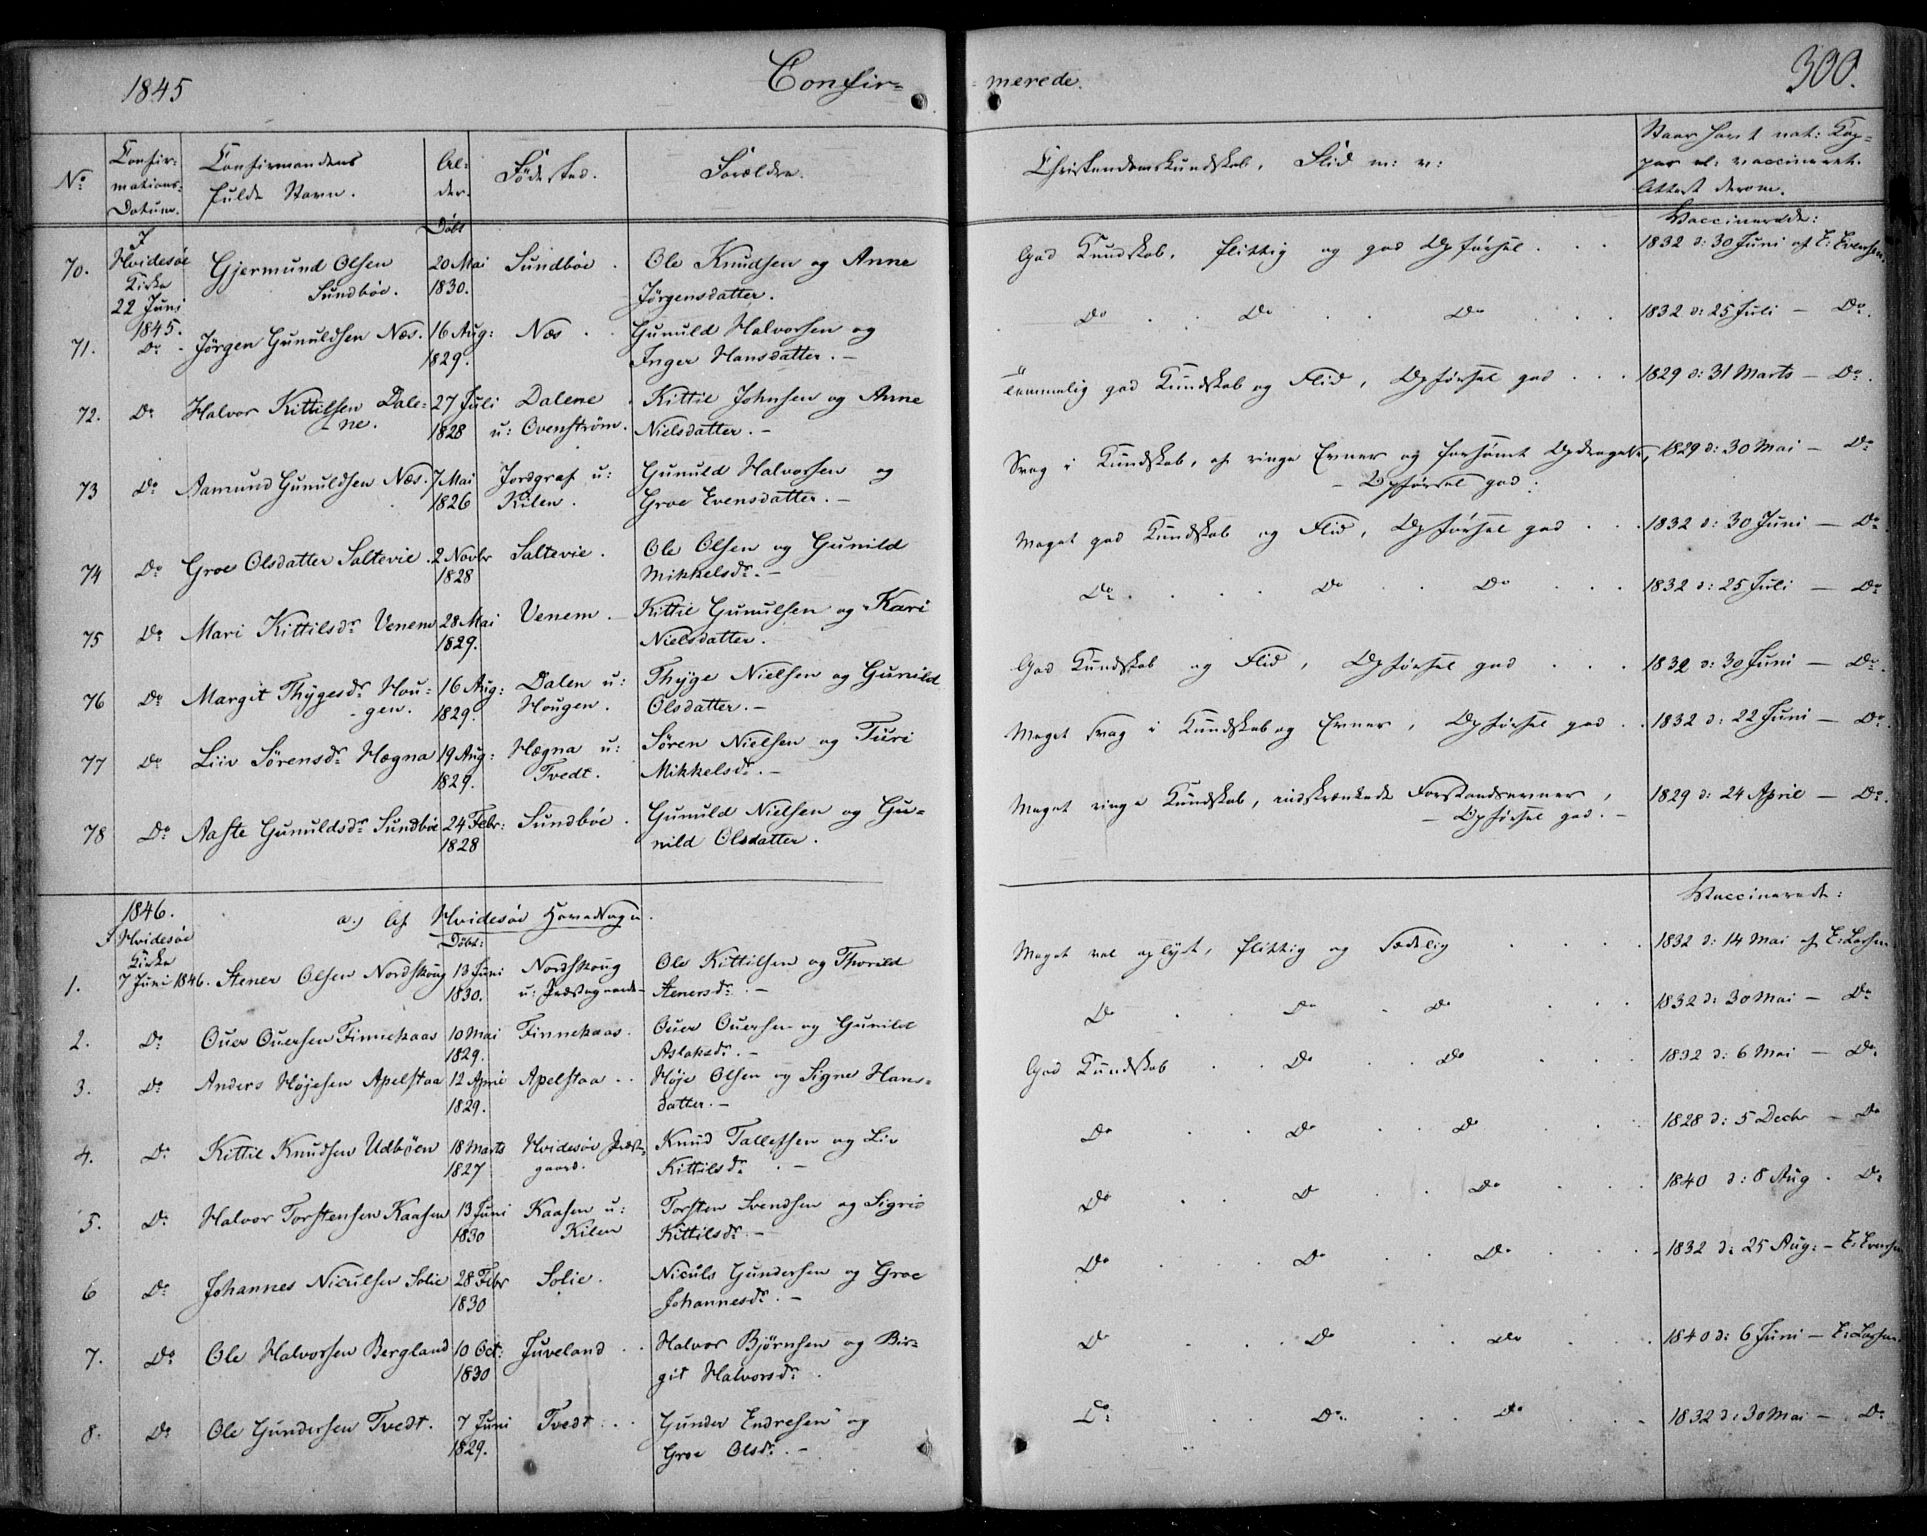 1845 Confir= merede. 300.
No Confir=mations=Datum. Confirmandens fulde Navn. Al=der. Fødested. Forældre. Christendomskundskab, Flid m: v: Naar havt nat: Kop=per el: vaccineret. Attest derom.
Døbt Vaccinerede:
70. I Hvidesøe Kirke 22 Juni 1845. Gjermund Olsen Sundbøe. 20 Mai 1830. Sundbøe. Ole Knudsen og Anne Jörgensdatter. God Kundskab, flittig og god Opførsel . . . 1832 d: 30 Juni af E: Evensen.
71. Do Jörgen Gunuldsen Næs. 16 Aug: 1829. Næs . . Gunuld Halvorsen og Inger Hansdatter. — Do . . Do . . Do . . . 1832 d: 25 Juli — Do.
72. Do Halvor Kittilsen Dale=ne. 27 Juli 1828 Dalene u: Ovenström. Kittil Johnsen og Anne Nielsdatter. — temmelig god Kundskab og Flid, Opførsel god . . . 1829 d: 31 Marts — Do.
73 Do Aamund Gunuldsen Næs. 7 Mai 1826 Jordgraf u: Kilen. Gunuld Halvorsen og Groe Evensdatter. — Svag i Kundskab, af ringe Evner og forsømt Opdragelse, — Opførsel god. 1829 d: 30 Mai — Do
74 Do Groe Olsdatter Saltevie. 2 Novbr 1828 Saltevie. Ole Olsen og Gunild Mikkelsdr. — Meget god Kundskab og Flid, Opførsel god . . . 1832 d: 30 Juni — Do
75 Do Mari Kittilsdr Venem 28 Mai 1829. Venem. Kittil Gunulsen og Kari Nielsdatter. Do . . . Do . . Do . . 1832 d: 25 Juli — Do
76 Do Margit Thygesdr Hou=gen. 16 Aug: 1829. Dalen u: Hougen. Thyge Nielsen og Gunild Olsdatter. — God Kundskab og Flid, Opførsel god . . . 1832 d: 30 Juni — Do.
77 Do Liiv Sörensdr Hægna 19 Aug: 1829. Hægna u: Tvedt. Sören Nielsen og Turi Mikkelsdr. — Meget svag i Kundskab og Evner, Opførsel god . . 1832 d: 22 Juni — Do.
78 Do Aaste Gunuldsdr Sundbøe 24 Febr: 1828 Sundbøe. Gunuld Nielsen og Gu=nild Olsdatter. Meget ringe Kundskab, indskrænkede Forstandsevner, — Opførsel god. — 1829 d: 24 April — Do.
1846. a.) Af Hvidesøe Hovedsogn. Vaccinerede:
Døbt:
1. I Hvidesøe Kirke 7 Juni 1846. Stener Olsen Nordskoug 13 Juni 1830. Nordskoug u: Præstegaarde Ole Kittilsen og Thorild Stenersdr. — Meget vel oplyst, flittig og sædelig . . . . 1832 d: 14 Mai af E: Larsen
2. Do Ouer Ouersen Finnekaas 10 Mai 1829. Finnekaas. Ouer Ouersen og Gunild Aslaksdr. — Do . . Do . Do . . . 1832 d: 30 Mai — Do
3. Do Anders Höjesen Apelstaa 12 April 1829. Apelstaa . . Höje Olsen og Signe Hans=datter. — God Kundskab . Do . . Do . . . 1832 d: 6 Mai — Do.
4. Do Kittil Knudsen Udbøen 18 Marts 1827 Hvidesøe Præste gaard. Knud Tallefsen og Liv Kittilsdr. — Do . . Do . . Do . . . 1828 d: 5 Decbr — Do
5. Do Halvor Torstensen Kaasen 13 Juni 1830 Kaasen u: Kilen Torsten Svendsen og Sigrid Kittilsdr. — Do . . Do . . Do . . . 1840 d: 8 Aug . Do
6 Do Johannes Niculsen Solie 28 Febr 1830 Solie. Niculs Gundersen og Groe Johannesdr. — Do . . Do . . Do . . . 1832 d: 25 Aug: — E: Evensen
7. Do Ole Halvorsen Bergland 10 Oct: 1830 Juveland . . Halvor Bjørnsen og Bir=git Halvorsdr. Do . . Do . . Do . . . 1840 d: 6 Juni — E: Larsen
8. Do Ole Gundersen Tvedt. 7 Juni 1829. Tvedt . . Gunder Endresen og Groe Olsdr. — Do . . Do . . Do . . . 1832 d: 30 Mai — Do